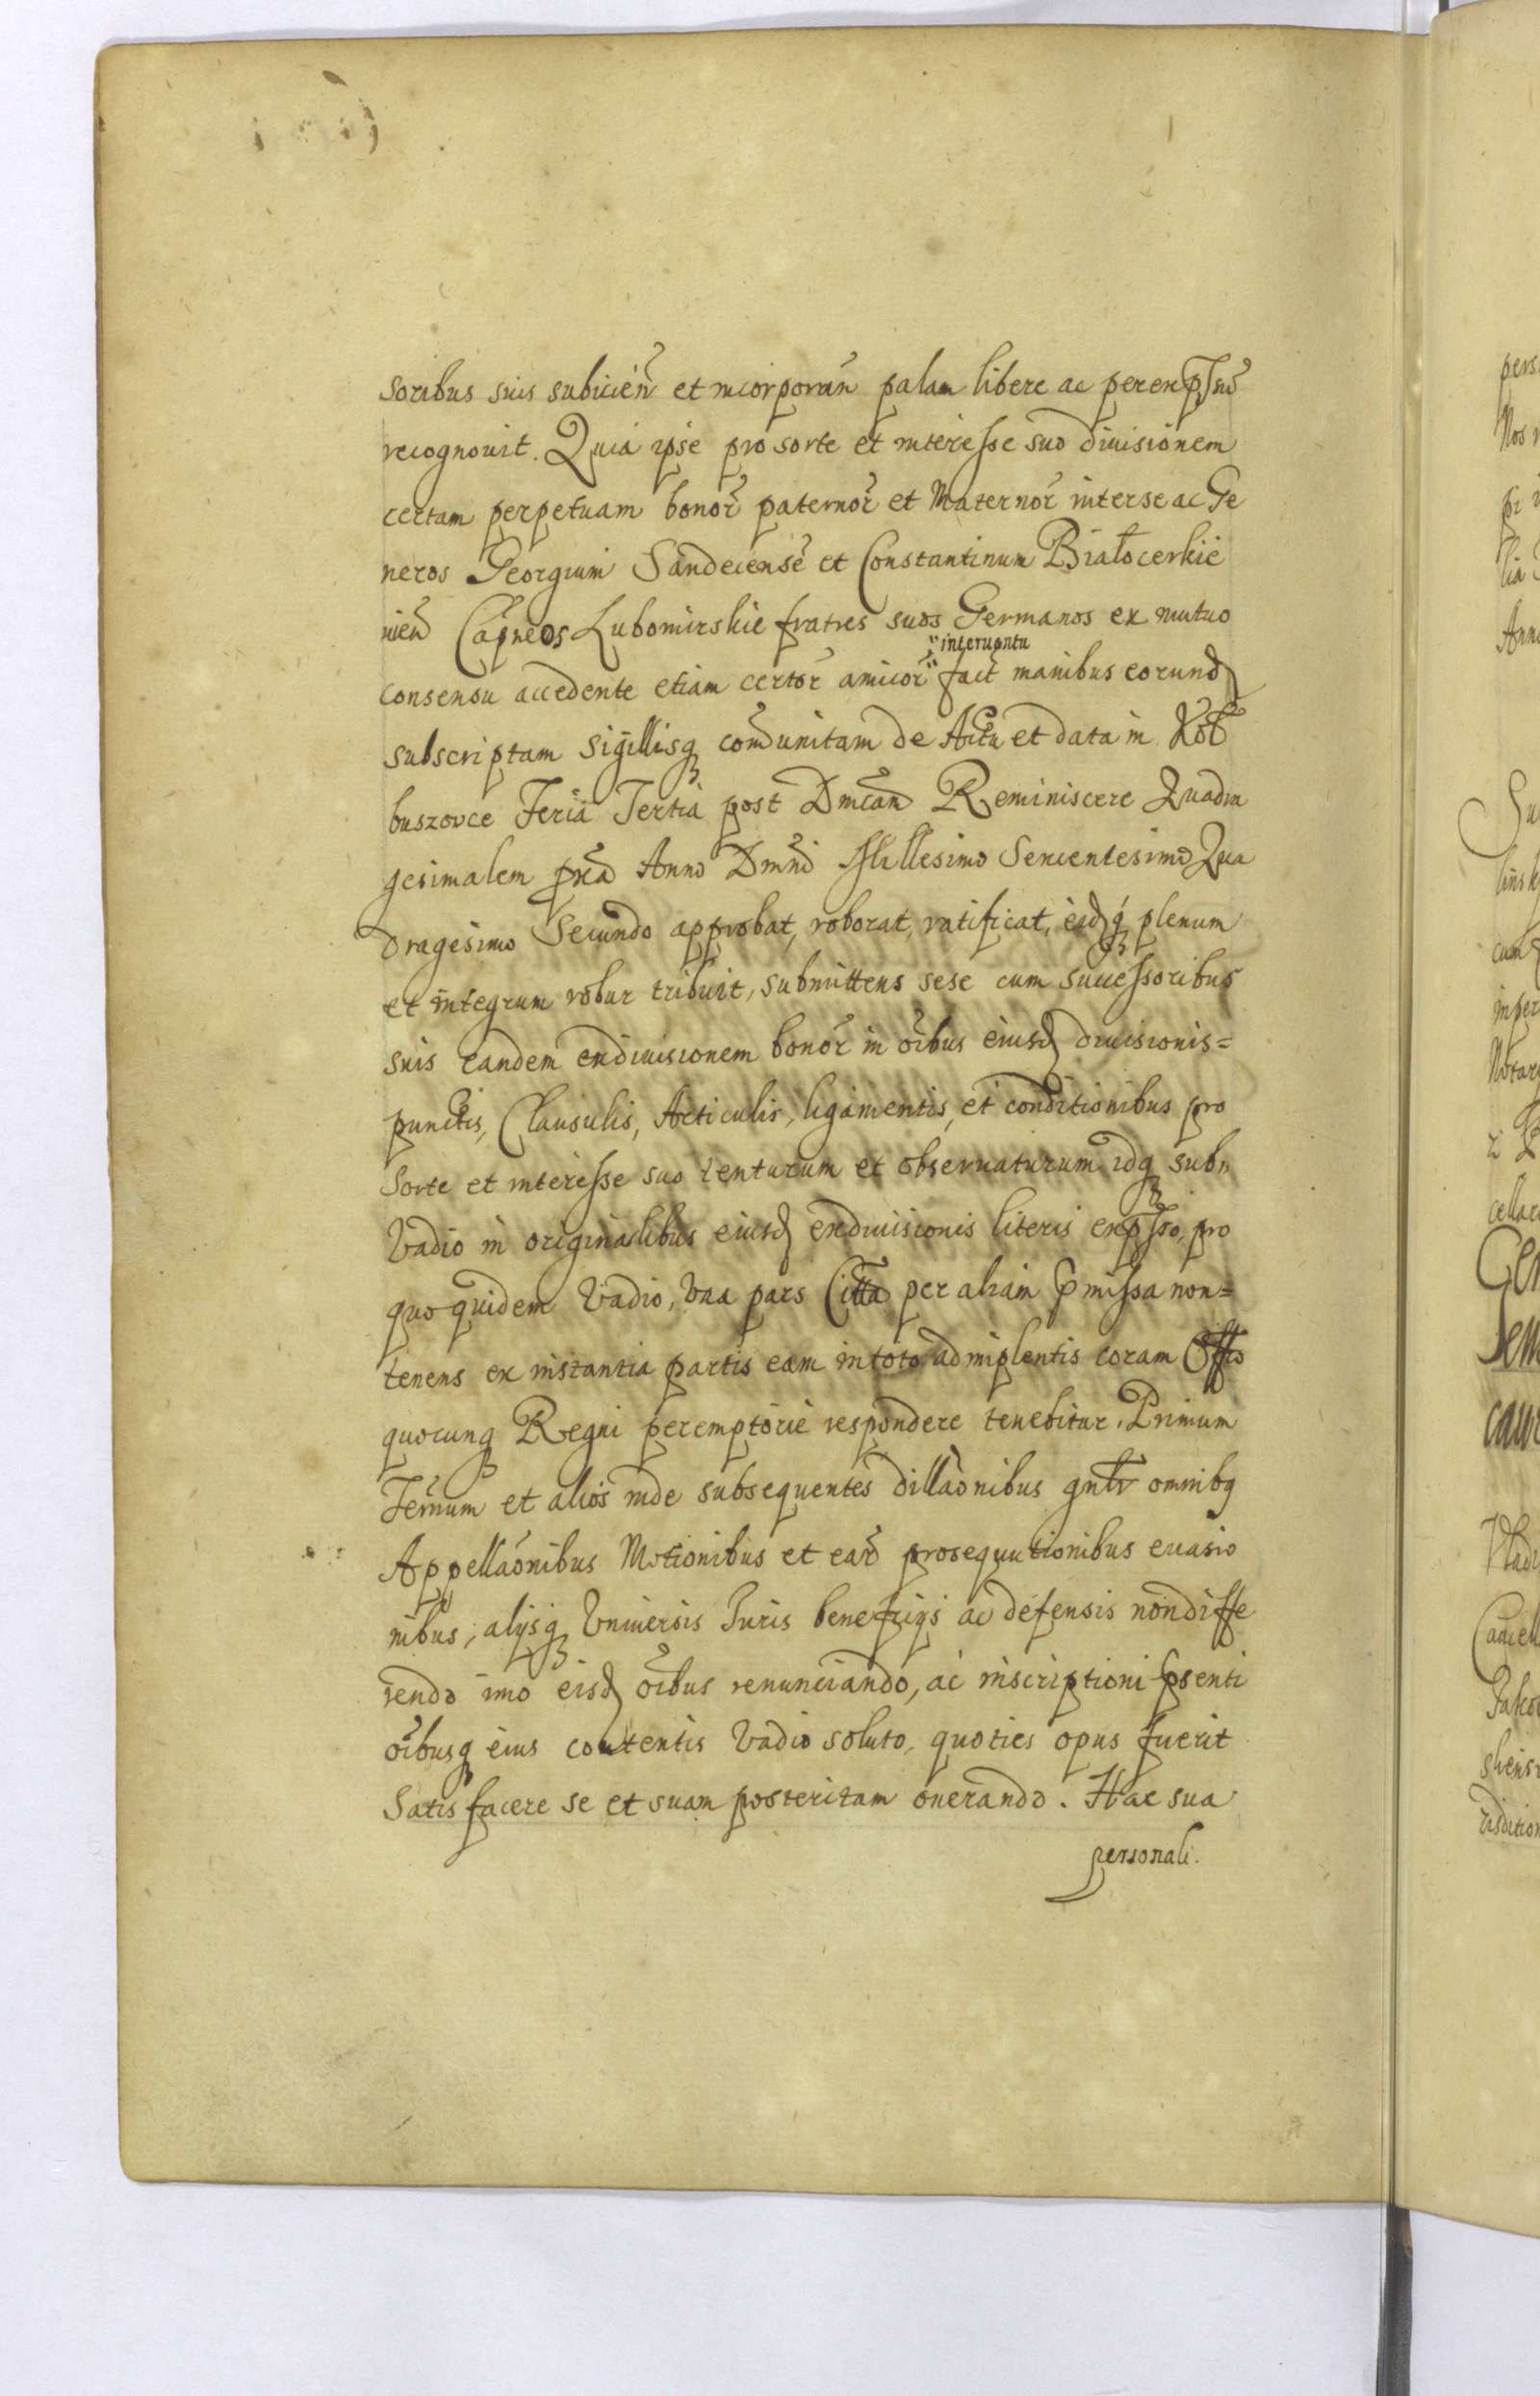 soribus suis subiicien̄ et incorporan̄ palam libere ac per exp̄ssū
recognouit. Quia ipse pro sorte et interesse suo diuisionem
certam perpetuam bonor̄ paternor̄ et Maternor̄ inter se ac Ge
neros Georgium Sandecensē et Constantinum Białocerkie
nien̄ Capneos Lubomirskie fratres suos Germanos ex mutuo
consensu accedente etiam certor̄ amicor̄ "interuentu" fact̄ manibus eorund
subscriptam sigillisq com̄unitam de Actu et data in Kol
buszovce Feria Tertia post Dmcam Reminiscere Quadra
gesimalem pn̄a Anno Dmni Millesimo Sexcentesimo Qua
dragesimo Secundo approbat, roborat, ratificat, eidq plenum
et integrum robur tribuit, submittens sese cum successoribus
suis eandem exdiuisionem bonor̄ in oībus eiusd diuisionis=
punctis, Clausulis, Articulis, ligamentis, et conditionibus pro
Sorte et interesse suo tenturum et obseruaturum idq sub"
Vadio in originalibus eiusd exdiuisionis literis exp̄sso, pro
quo quidem Vadio, Vna pars Citta per aliam p̄missa non=
tenens ex instantia partis eam in toto adimplentis coram Offo
quocunq Regni peremptorie respondere tenebitur. Primum
Ter̄num et alios inde subsequentes dillāonibus gnlr omnibq
Appellāonibus Motionibus et ear̄ prosequutionibus euasio
nibus, alijsq Vniuersis Iuris beneficijs ac defensis non diffe
rendo imo eisd oībus renunciando, ac inscriptioni p̄senti
oībusq eius contentis Vadio soluto, quoties opus fuerit
Satis facere se et suam posteritam onerando. Hac sua
personali.